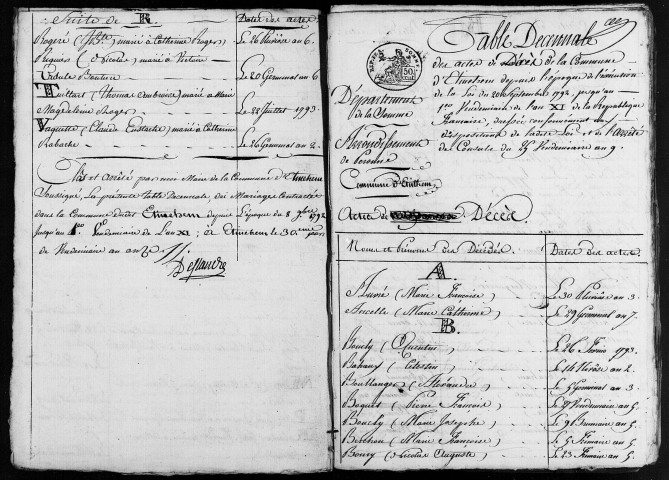 Suite de R. Dates des actes
Rogeré (Bte) marié à Catherine Roger Le 26 Pluviose an 6.
Riquier (Nicolas) marié à Victoire
Vatule Bouture Le 20 Germinal an 6
Tuittart (Thomas Ambroise) marié à Marie
Magdeleine Roger Le 22 Juillet 1793
Vaquette (Claude Eustache) marié à Catherine
Rabache Le 26 Germinal an 2.
Fait et arrêté par moi Maire de la Commune d'Etinehem
Soussigné, la présente table Decennale des Mariages Contractés
dans la Commune dudit Etinehem depuis l'époque du 8 9bre 1792
jusqu'au 1er Vendemiaire de l'an XI, à Etinehem le 30eme jour
de Vendemiaire an onze
Deflandre
Table Decennale
des actes de Décès de la Commune
d'Etinehem depuis l'époque de l'émission
de la Loi du 20 Septembre 1792 jusqu'au
1er Vendemiaire de l'an XI de la République
française, dressée conformément aux
dispositions de ladite Loi et de l'arrêté
des Consuls du 25 Vendemiaire an 9.
Département
de la Somme
Arrondissement
de Peronne
Commune d'Etinehem
Actes de Décès
Noms et Prénoms des Décédés. Dates des actes.
A.
(Marie Françoise) Le 30 Pluviose an 3.
Ancelle (Marie Catherine) Le 29 Germinal an 7.
B.
Boucly (Quentin) Le 26 1793.
(Célestin) Le 14 Nivose an 2.
Boullanger (Alexandre) Le 5 Germinal an 3.
Boquet (Pierre François) Le 9 Vendemiaire an 5.
Boucly (Marie Josephe) Le 9 Brumaire an 5.
Berthon (Marie Françoise) Le 5 Frimaire an 5.
Boury (Nicolas Auguste) Le 23 Frimaire an 5.